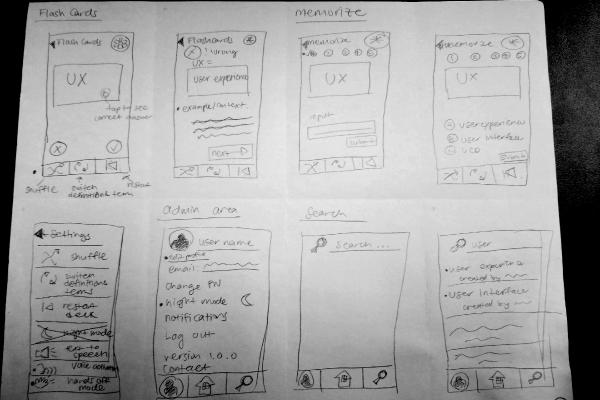 Flash Cards
Flash Cards
UX
tap to see
correct answer
shuffle
switch
definitions
term
restart
Flashcards
! wrong
UX =
User experience
example/context.
next
Memorize
memorize
UX
input
submit
Memorize
UX
User experience
User interface
UCD
Settings
shuffle
switch
definitions
terms
restart
deck
night mode
text to
speech
voice
hands off
mode
admin area
User name
edit profile
email:
Change PW
night mode
notifications
Log out
version 1.0.0
contact
Search
Search ...
user
user experience
created by
User interface
created by